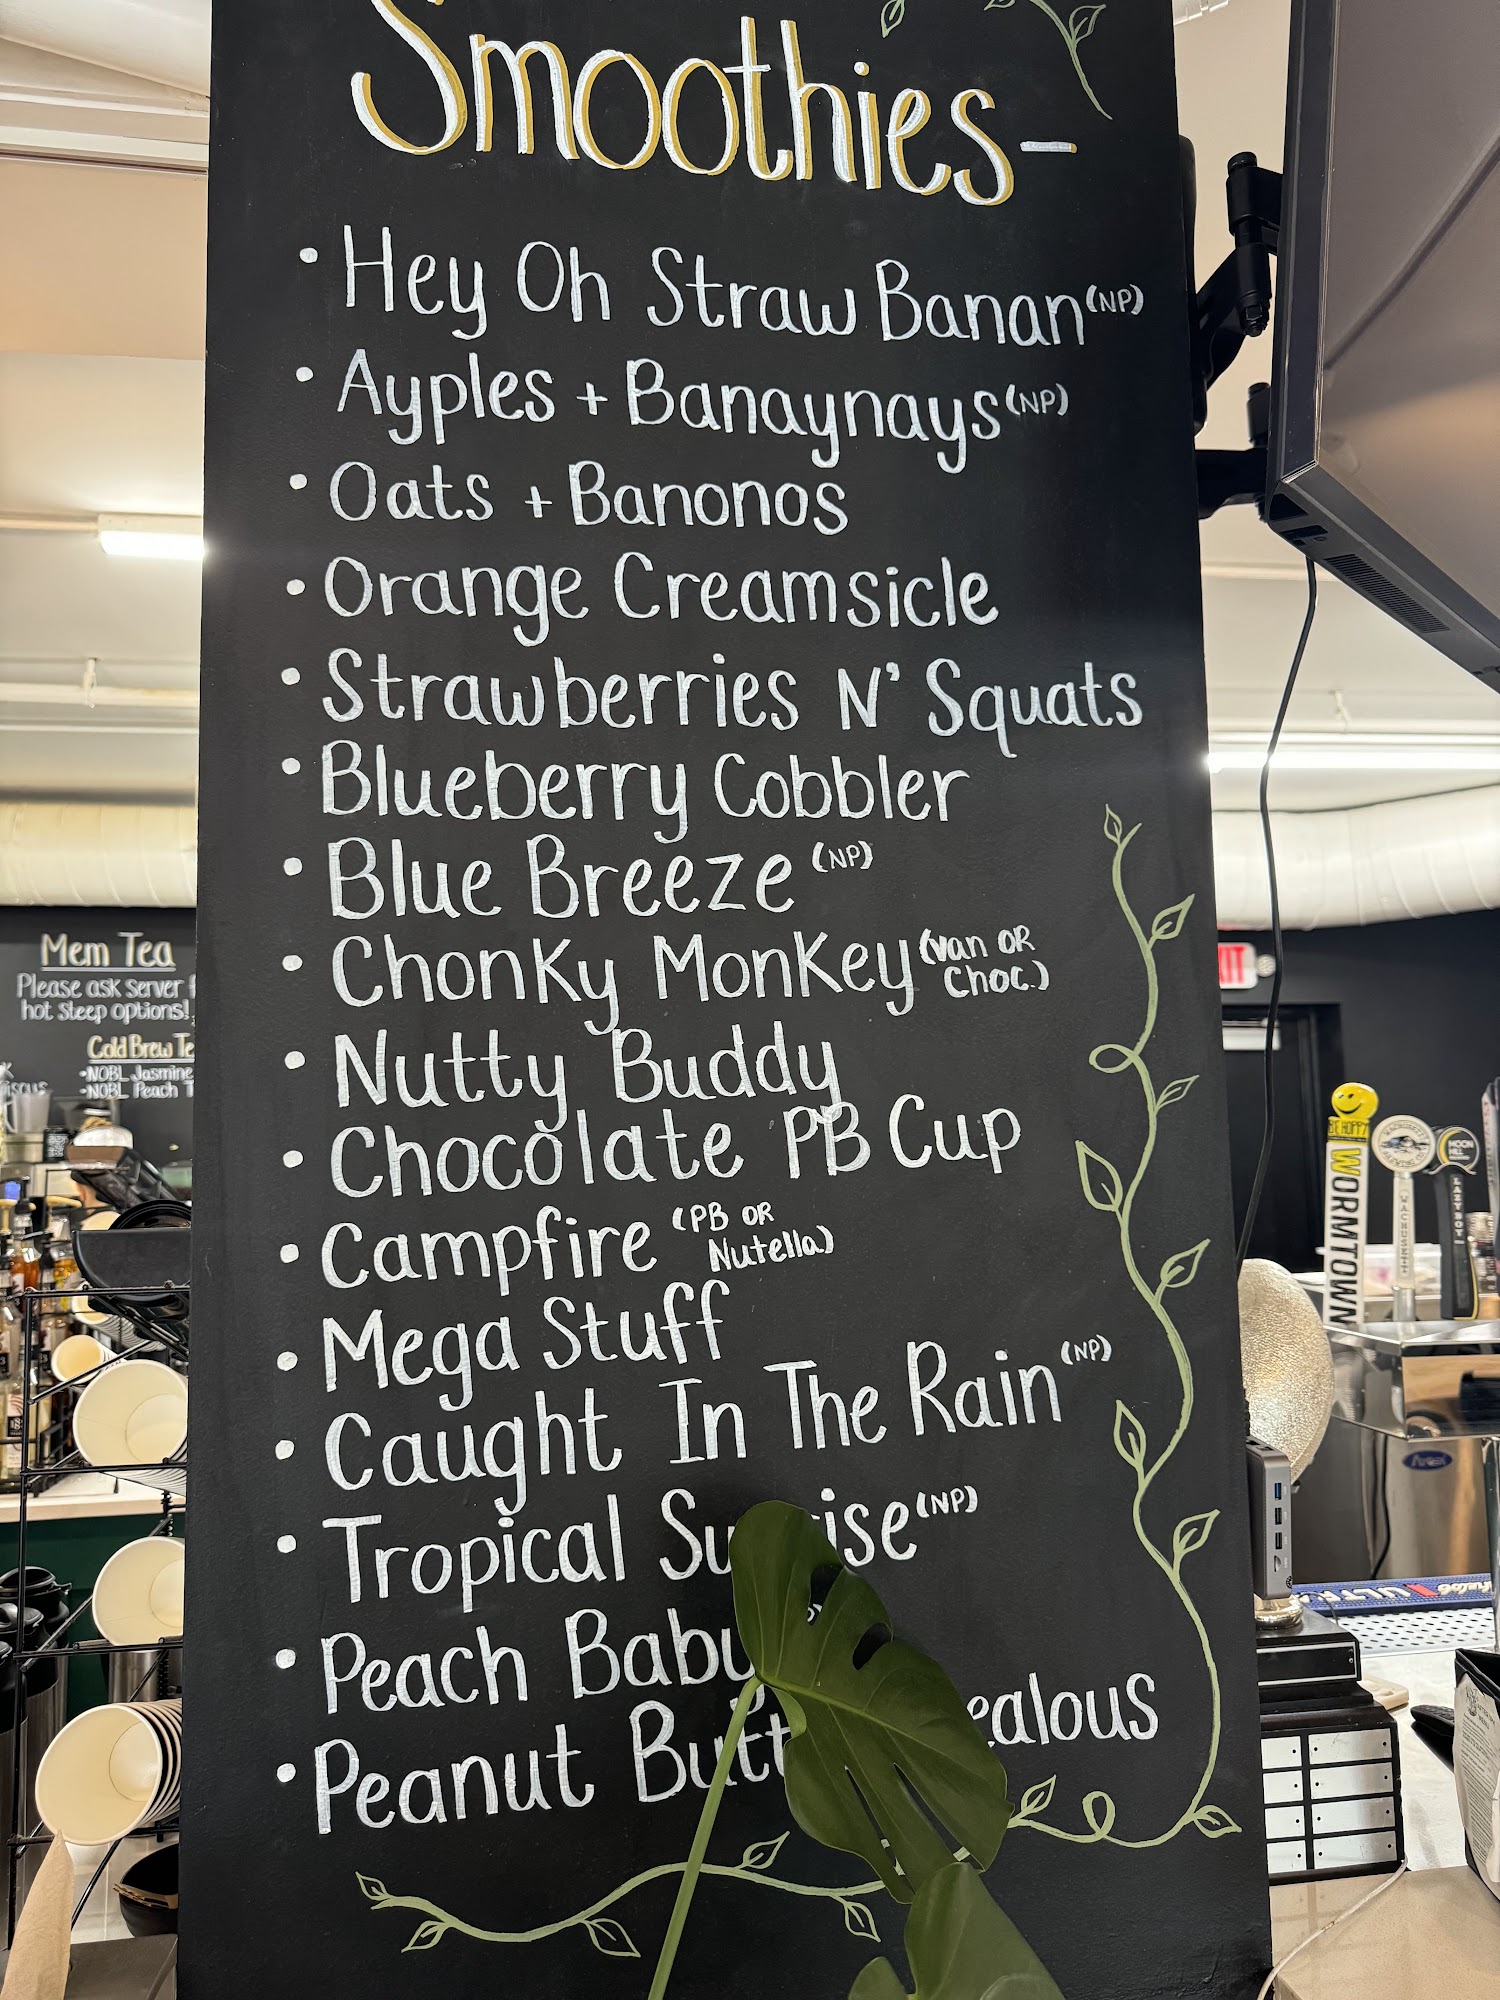 Smoothies-
• Hey Oh Straw Banan (NP)
• Ayples + Banaynays (NP)
• Oats + Banonos
• Orange Creamsicle
• Strawberries N' Squats
• Blueberry Cobbler
• Blue Breeze (NP)
• Chonky Monkey (Van OR
Choc.)
• Nutty Buddy
• Chocolate PB Cup
• Campfire (PB OR
Nutella)
• Mega Stuff
• Caught In The Rain (NP)
• Tropical (NP)
• Peach Baby
• Peanut
Mem Tea
Please ask server
hot steep options!
Cold Brew
•NOBL Jasmine
•NOBL Peach
BE HOPPY
WORMTOWN
WACHUSETT
ULTRA